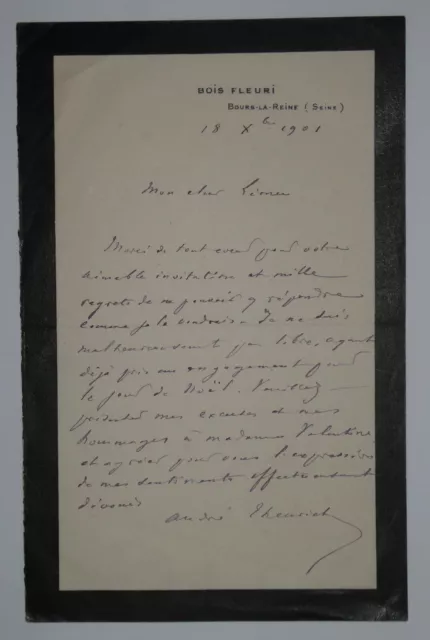 BOIS FLEURI
BOURG-LA-REINE (SEINE)
18 Xbre 1901
Mon cher
Merci de tout cœur pour votre
aimable invitation et mille
regrets de ne pouvoir y répondre
comme je le voudrais. Je ne suis
malheureusement pas libre, ayant
déjà pris un engagement pour
le jour de Noël. Veuillez
présenter mes excuses et mes
hommages à madame Valentine
et agréer pour vous l'expression
de mes sentiments affectueusement
dévoués
André Theuriet